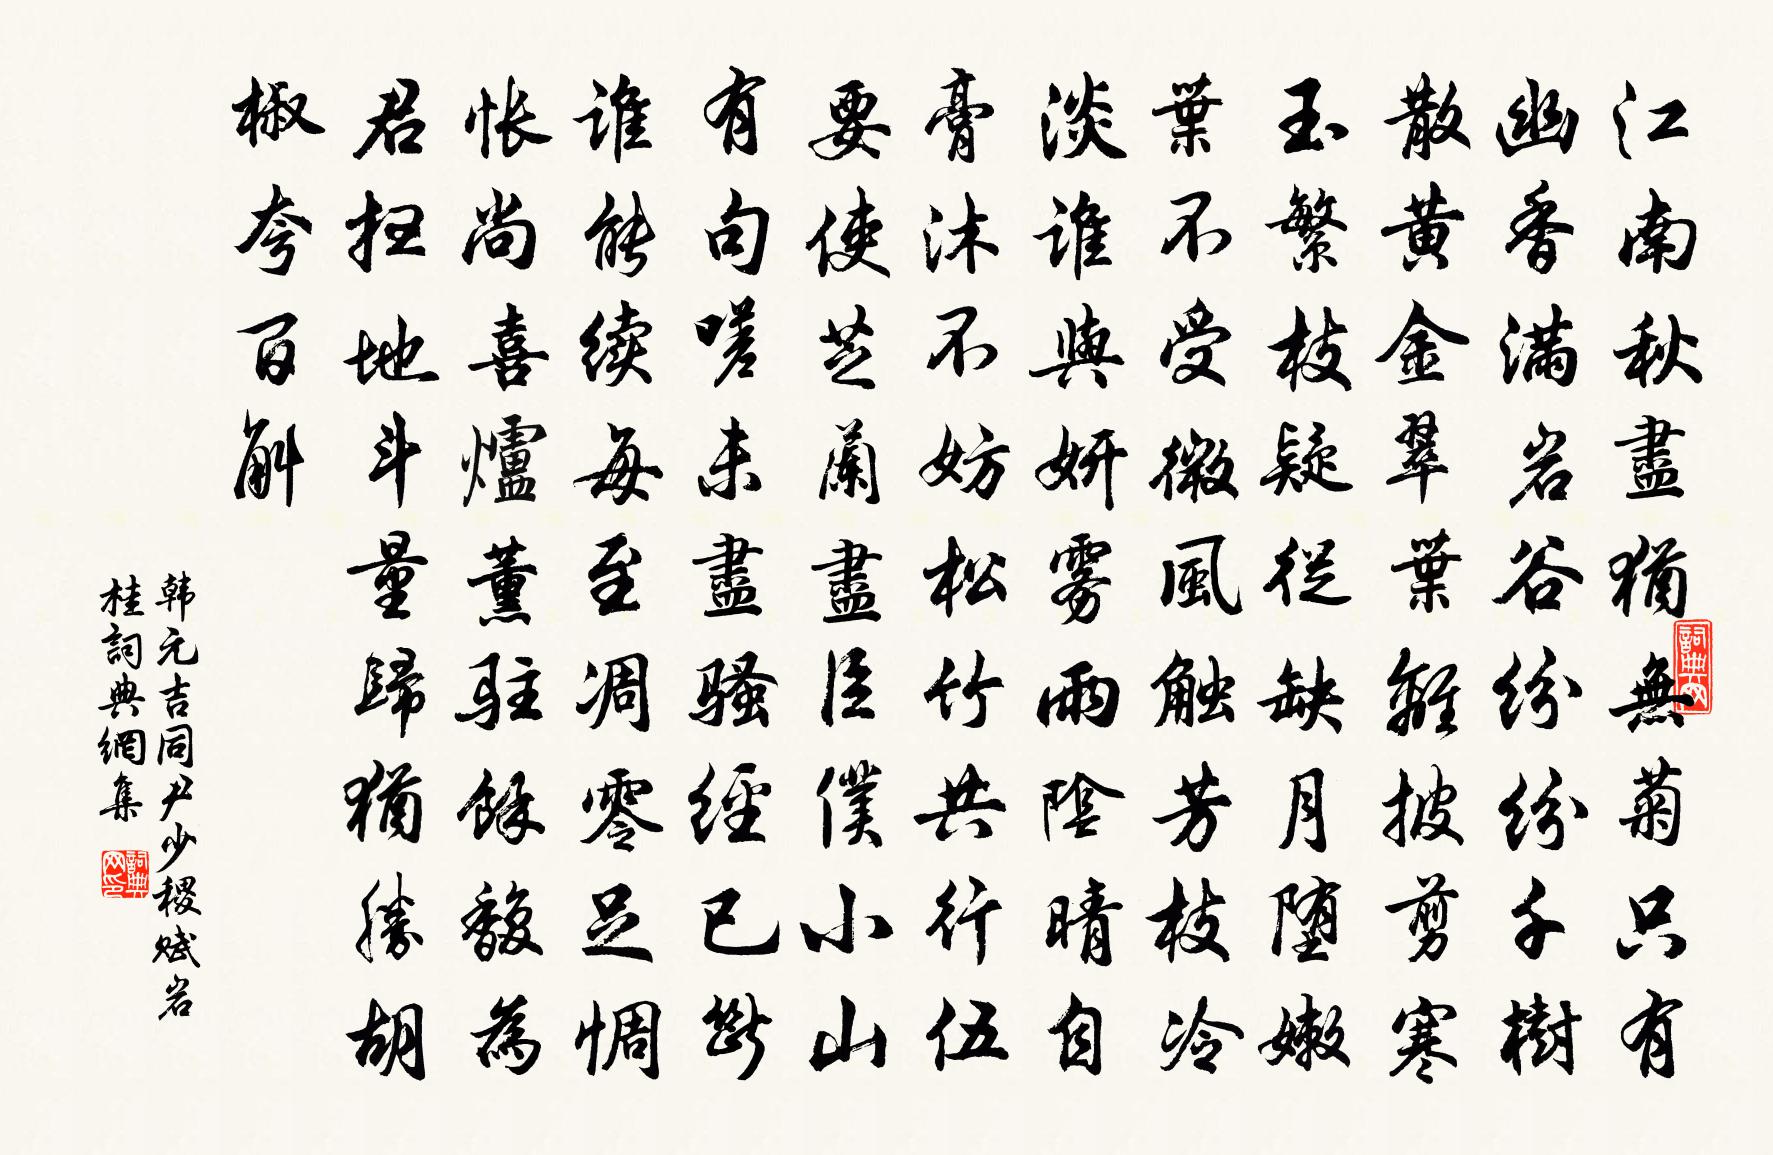 江南秋盡猶無菊只有
幽香滿岩谷紛紛千樹
散黃金翠葉雜披剪寒
玉繁枝疑從缺月墮嫩
葉不受微風触芳枝冷
淡誰與妍雾雨陰晴自
膏沐不妨松竹共行伍
要使芝蘭盡臣僕小山
有句嗟未盡騷經已斷
谁能续每至凋零足惆
悵尚喜爐薰駐餘馥為
君扫地斗量歸猶勝胡
椒夸百斛
韩元吉同尹少稷赋岩
桂詞典網集
詞典网
詞典网印